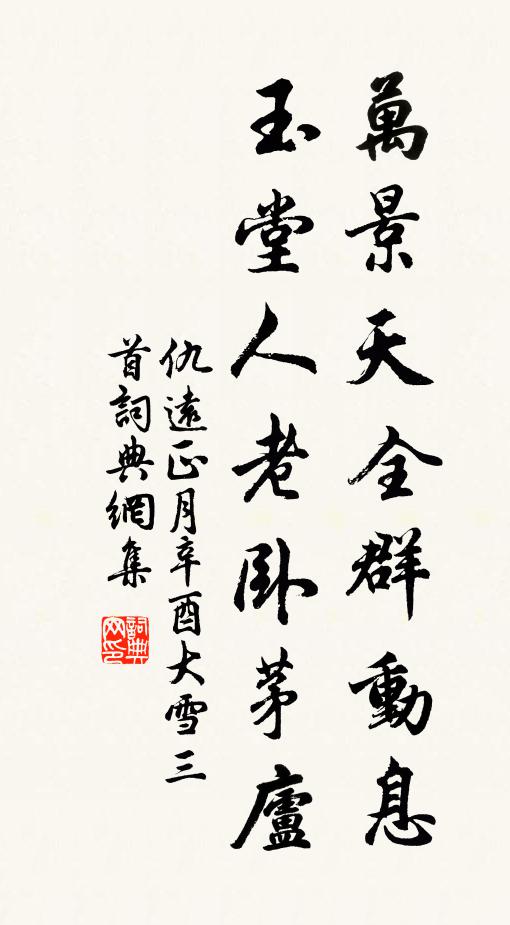 萬景天全群動息
玉堂人老卧茅廬
仇遠正月辛酉大雪三
首詞典網集
詞典
网印